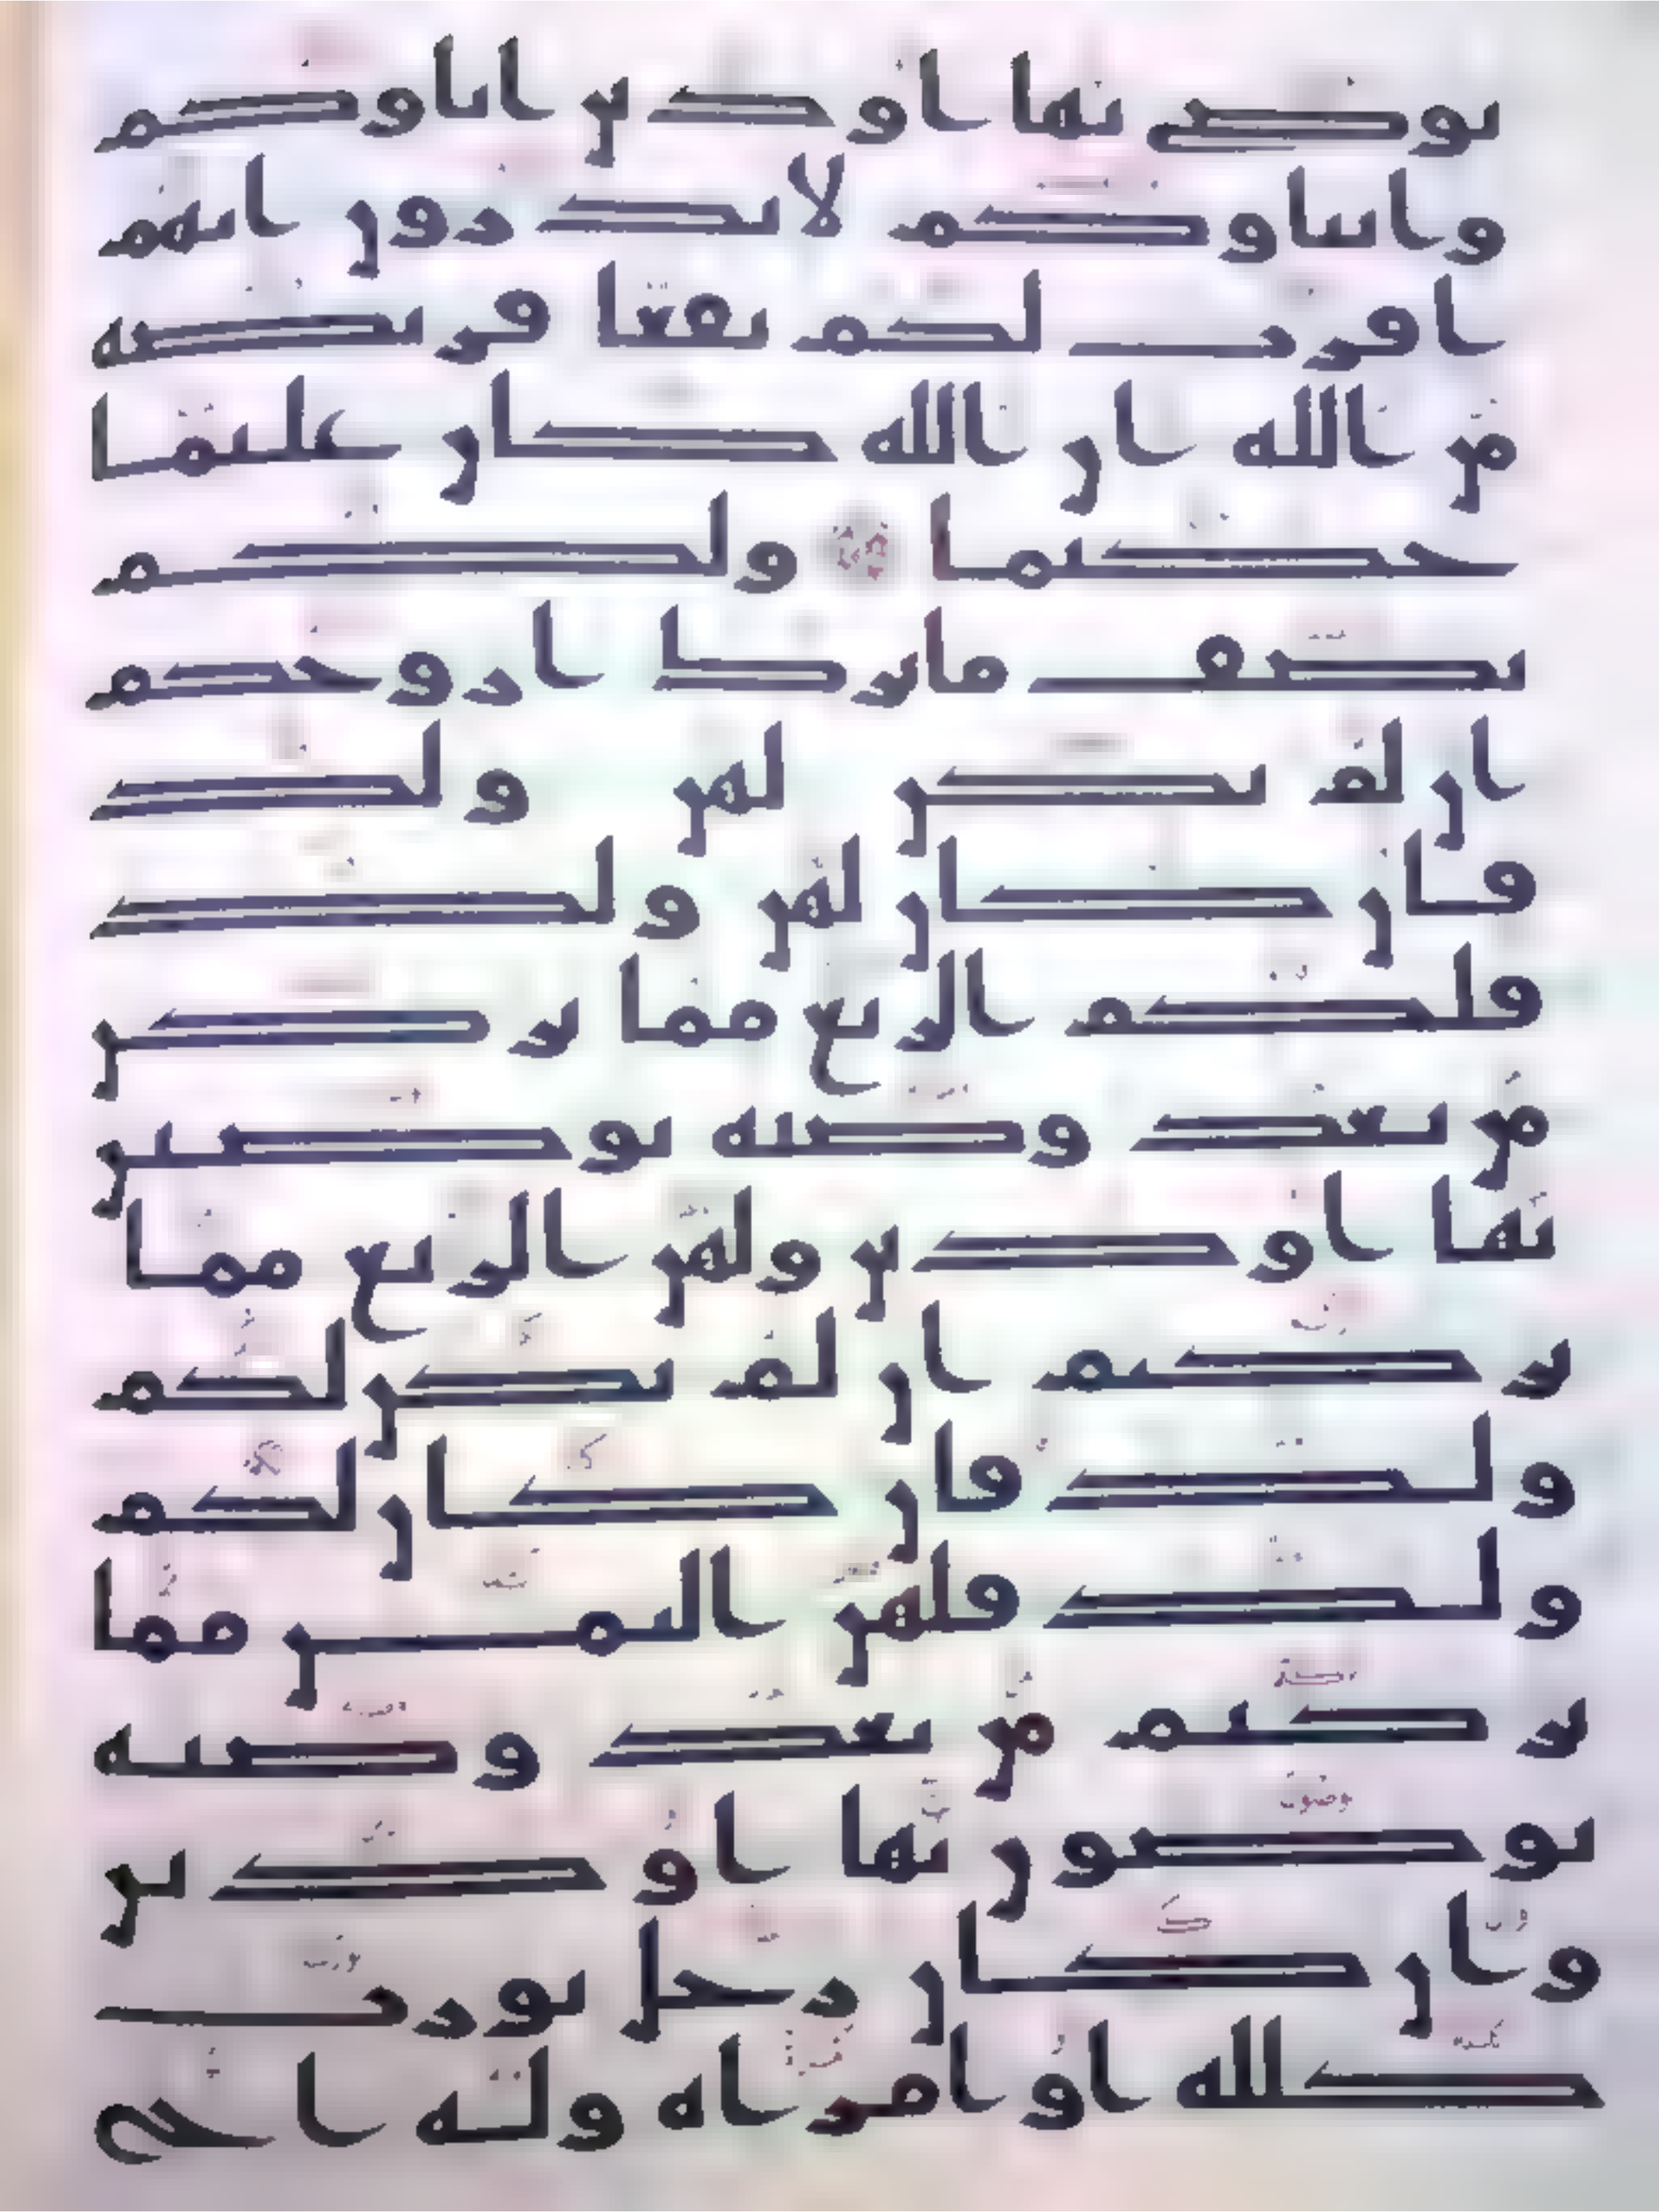 يوصى بها او دين اباوكم
وابناوكم لا تدرون ايهم
اقرب لكم نفعا فريضه
من الله ان الله كان عليما
حكيما ولكم
نصف ما ترك ازوجكم
ان لم يكن لهن ولد
فان كان لهن ولد
فلكم الربع مما تركن
من بعد وصيه يوصين
بها او دين ولهن الربع مما
تركتم ان لم يكن لكم
ولد فان كان لكم
ولد فلهن الثمن مما
تركتم من بعد وصيه
توصون بها او دين
وان كان رجل يورث
كلله او امراه وله اخ